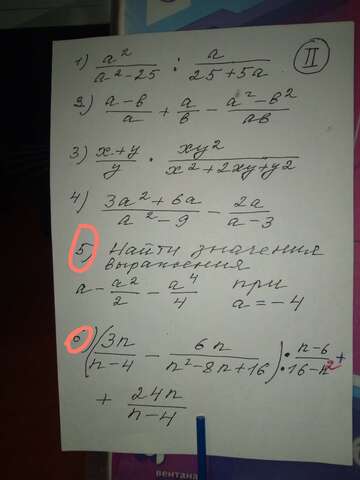 II
1) a²/(a²-25) : a/(25+5a)
2) (a-b)/a + a/b - (a²-b²)/(ab)
3) (x+y)/y · xy²/(x²+2xy+y²)
4) (3a²+6a)/(a²-9) - 2a/(a-3)
5) Найти значения
выражения
a - a²/2 - a⁴/4 при a=-4
6) (3n/(n-4) - 6n/(n²-8n+16)) : (n-6)/(16-n²) +
+ 24n/(n-4)
вентана